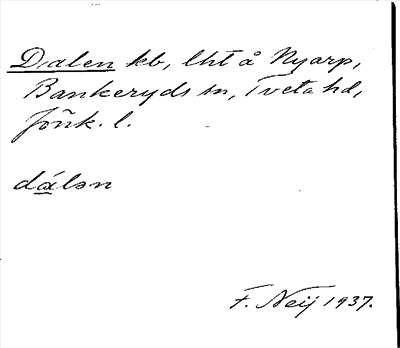 Dalen kb, lht å Nyarp,
Bankeryds sn, Tveta hd,
Jönk. l.
dálən
F. Neij 1937.